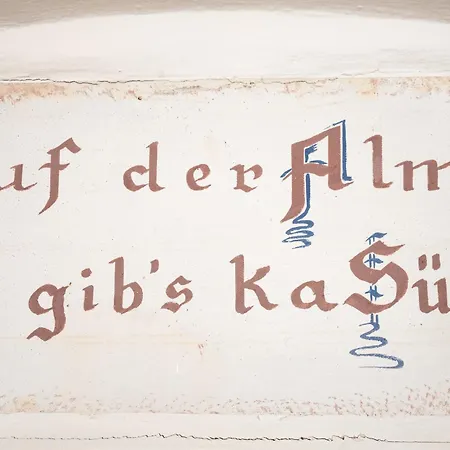 uf der Alm
gib's ka Sü